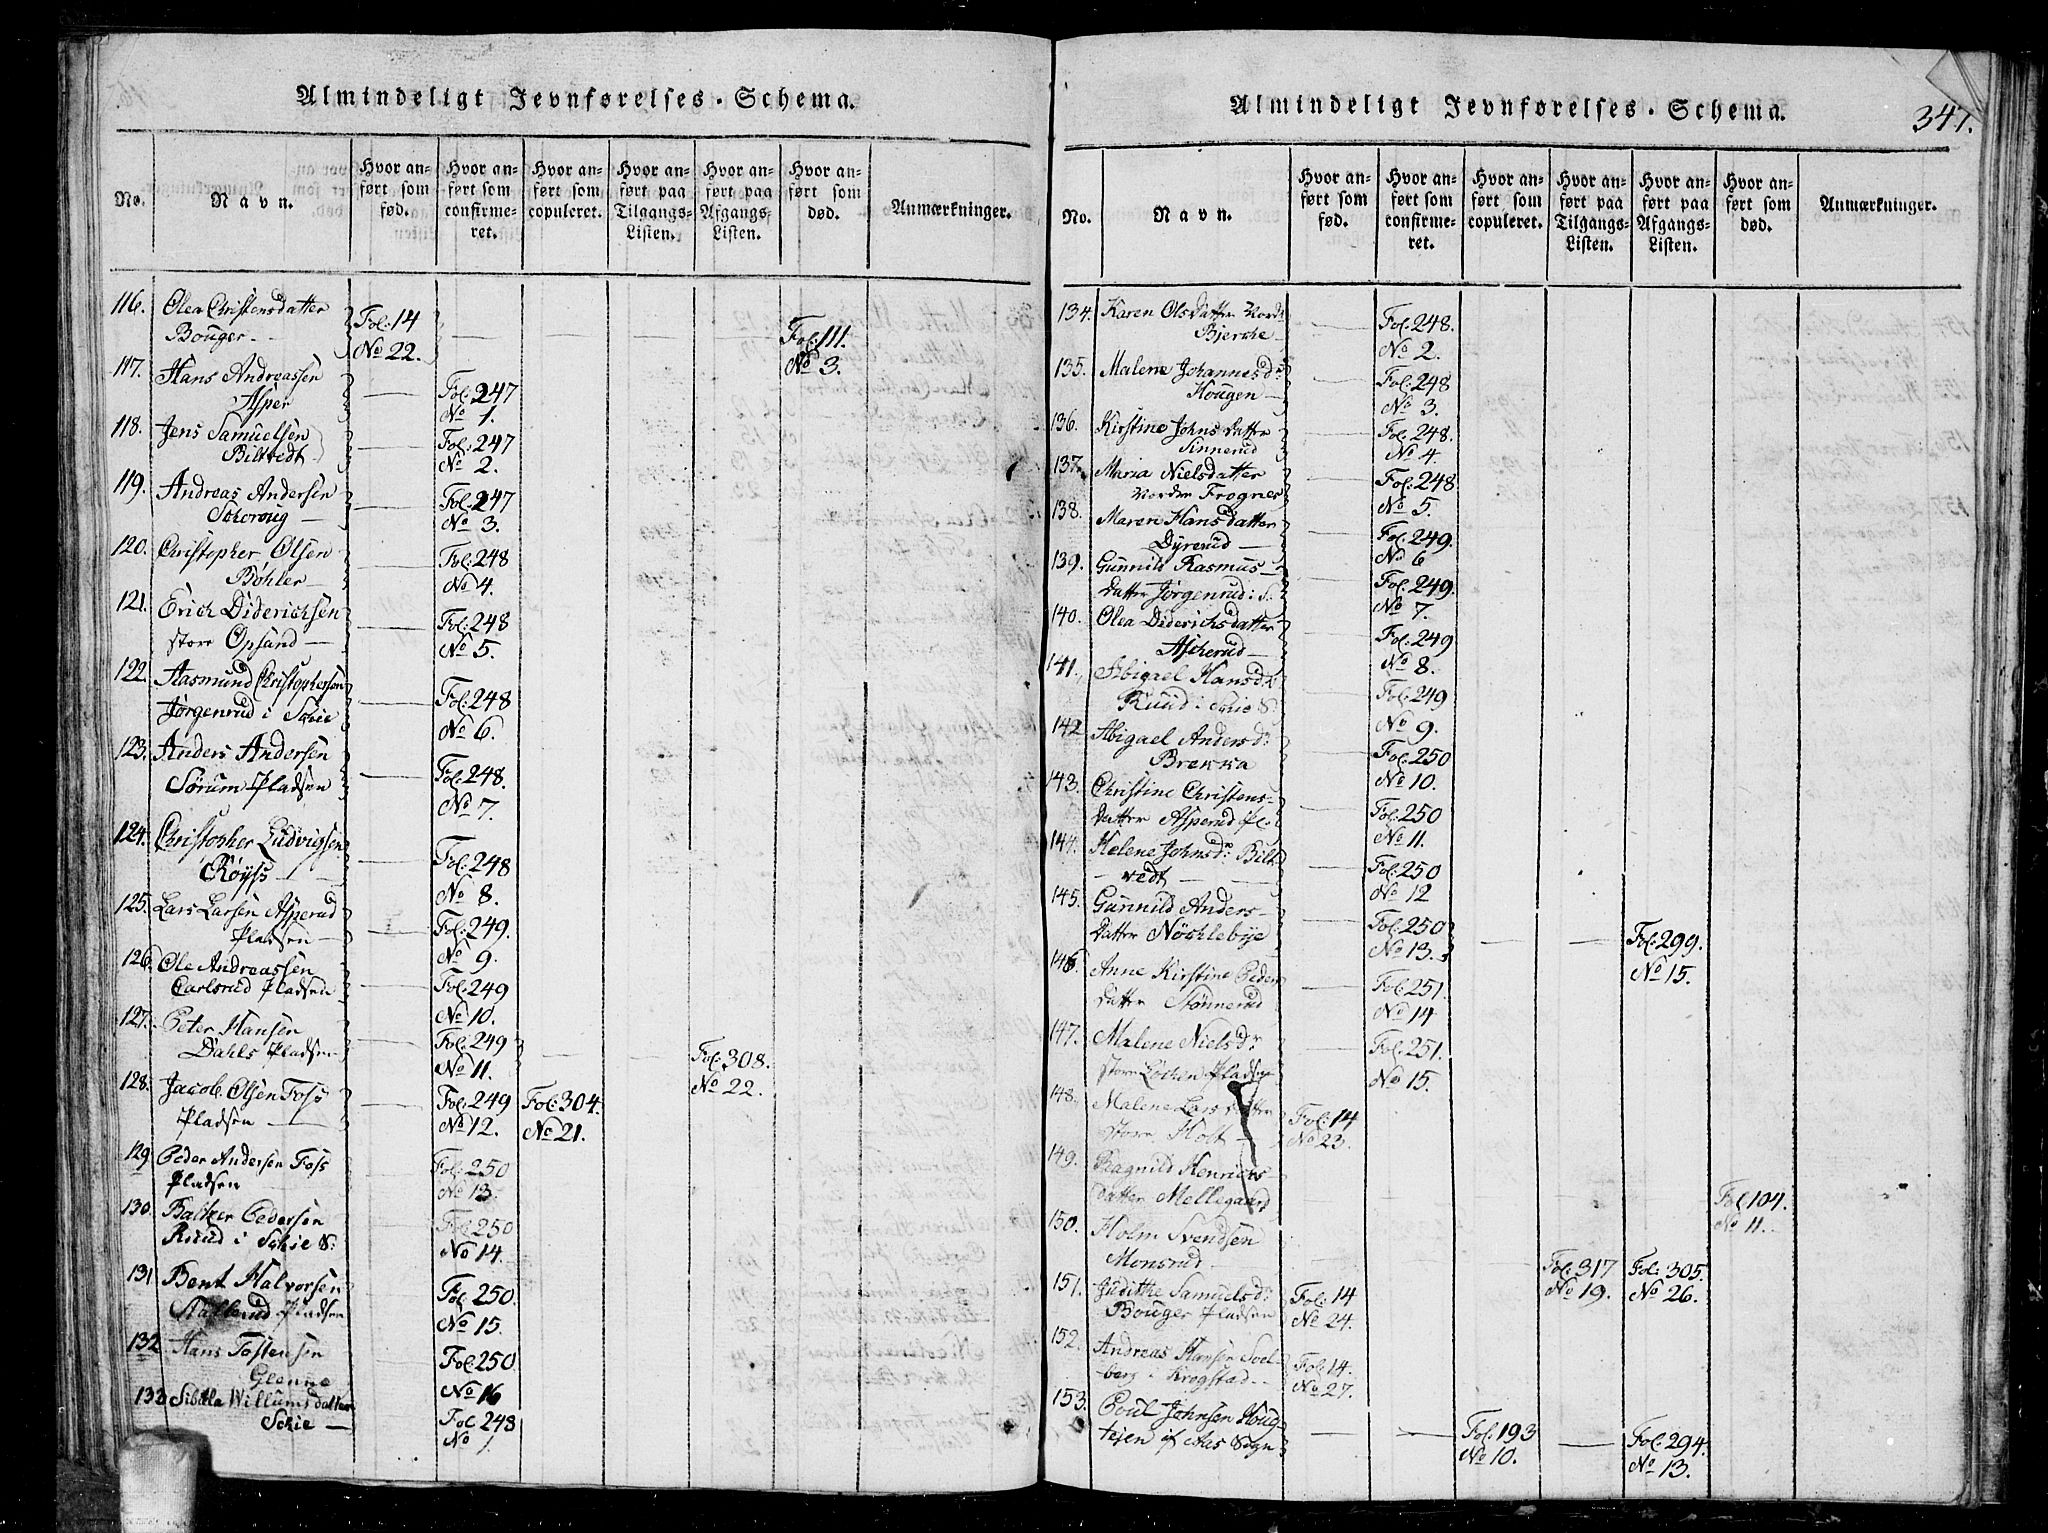 Almindeligt Jevnførelses-Schema.
No.
Navn.
Hvor anført som fød.
Hvor anført som confirmeret.
Hvor anført som copuleret.
Hvor anført paa Tilgangs-Listen.
Hvor anført paa Afgangs-Listen.
Hvor anført som død.
Anmærkninger.
116. Olea Christensdatter Fol: 14 — — — — Fol. 111.
Bouger — No 22. No 3.
117. Hans Andreassen — Fol: 247
Asper No 1.
118. Jens Samuelsen Fol: 247
Biltvedt No 2.
119. Andreas Andersen — Fol: 247
Schoroug — No 3.
120. Christopher Olsen — Fol: 248
Bøhler — No 4.
121. Erich Diderichsen — Fol: 248
store Opsand — No 5.
122. Aasmund Christophersen — Fol: 248
Jørgenrud i Schie No 6.
123. Anders Andersen — Fol: 248.
Sørum Pladsen No 7.
124. Christopher Ludvigsen — Fol: 248
Røyss — No 8.
125. Lars Larsen Asperud — Fol: 249.
Pladsen — No 9.
126. Ole Andreassen — Fol: 249
Carlsrud Pladsen No 10.
127. Peter Hansen — Fol: 249 — — Fol. 308.
Dahls Pladsen No 11. No 22.
128. Jacob Olsen Foss — Fol: 249 Fol: 304.
Pladsen — No 12. No 21.
129 Peder Andersen Foss Fol: 250
Pladsen — No 13.
130. Baltzer Pedersen — Fol: 250
Ruud i Schie S: No 14.
131. Bent Halvorsen — Fol: 250.
Stallerud Pladsen No 15.
132 Hans Tostensen — Fol: 250
Glenne No 16
133 Sibilla Willumsdatter Fol 248
Schie — No 1.
Almindeligt Jevnførelses-Schema.
347.
No.
Navn.
Hvor anført som fød.
Hvor anført som confirmeret.
Hvor anført som copuleret.
Hvor anført paa Tilgangs-Listen.
Hvor anført paa Afgangs-Listen.
Hvor anført som død.
Anmærkninger.
134. Karen Olsdatter Nordr — Fol: 248.
Bjerche — No 2.
135. Malene Johannesdr — Fol: 248
Hougen — No 3.
136. Kirstine Johnsdatter — Fol: 248.
Sinnerud No 4.
137. Maria Nielsdatter — Fol: 248
Nordre Frogner No 5.
138. Maren Hansdatter — Fol: 249.
Dyrerud — No 6
139. Gunnild Rasmus- — Fol: 249.
datter Jørgenrud i S. No 7.
140. Olea Diderichsdatter — Fol: 249
Ascherud — No 8.
141. Abigael Hansdr — Fol: 249
Ruud i S: No 9.
142 Abigael Andersd: — Fol: 250
Brekka No 10.
143. Christine Christens- — Fol: 250
datter Asperud Pl. No 11.
144. Helene Johnsd: Bilt- — Fol: 250
vedt — No 12
145. Gunnild Anders- — Fol: 250 — — Fol: 299.
datter Nøchlebye No 13. No 15.
146. Anne Kirstine Peders- — Fol: 251.
datter Stønnerud No 14
147. Malene Nielsdr — Fol: 251.
store Løchen Pladsen No 15.
148. Malene Larsdatter Fol: 14
store Holt — No 23.
149. Ragnild Henrichs- Fol 104.
datter Mellegaard No 11.
150. Holm Svendsen — — — Fol: 317 Fol: 305.
Monsrud — No 19. No 26.
151. Judithe Samuelsd: Fol: 14
Bouger Pladsen No 24.
152. Andreas Hansen Soel- Fol: 14.
berg i Krogstad — No 27.
153. Poul Johnsen Houg- — — Fol: 193 — Fol: 294.
tejen af Aas Sogn No 10. No 13.